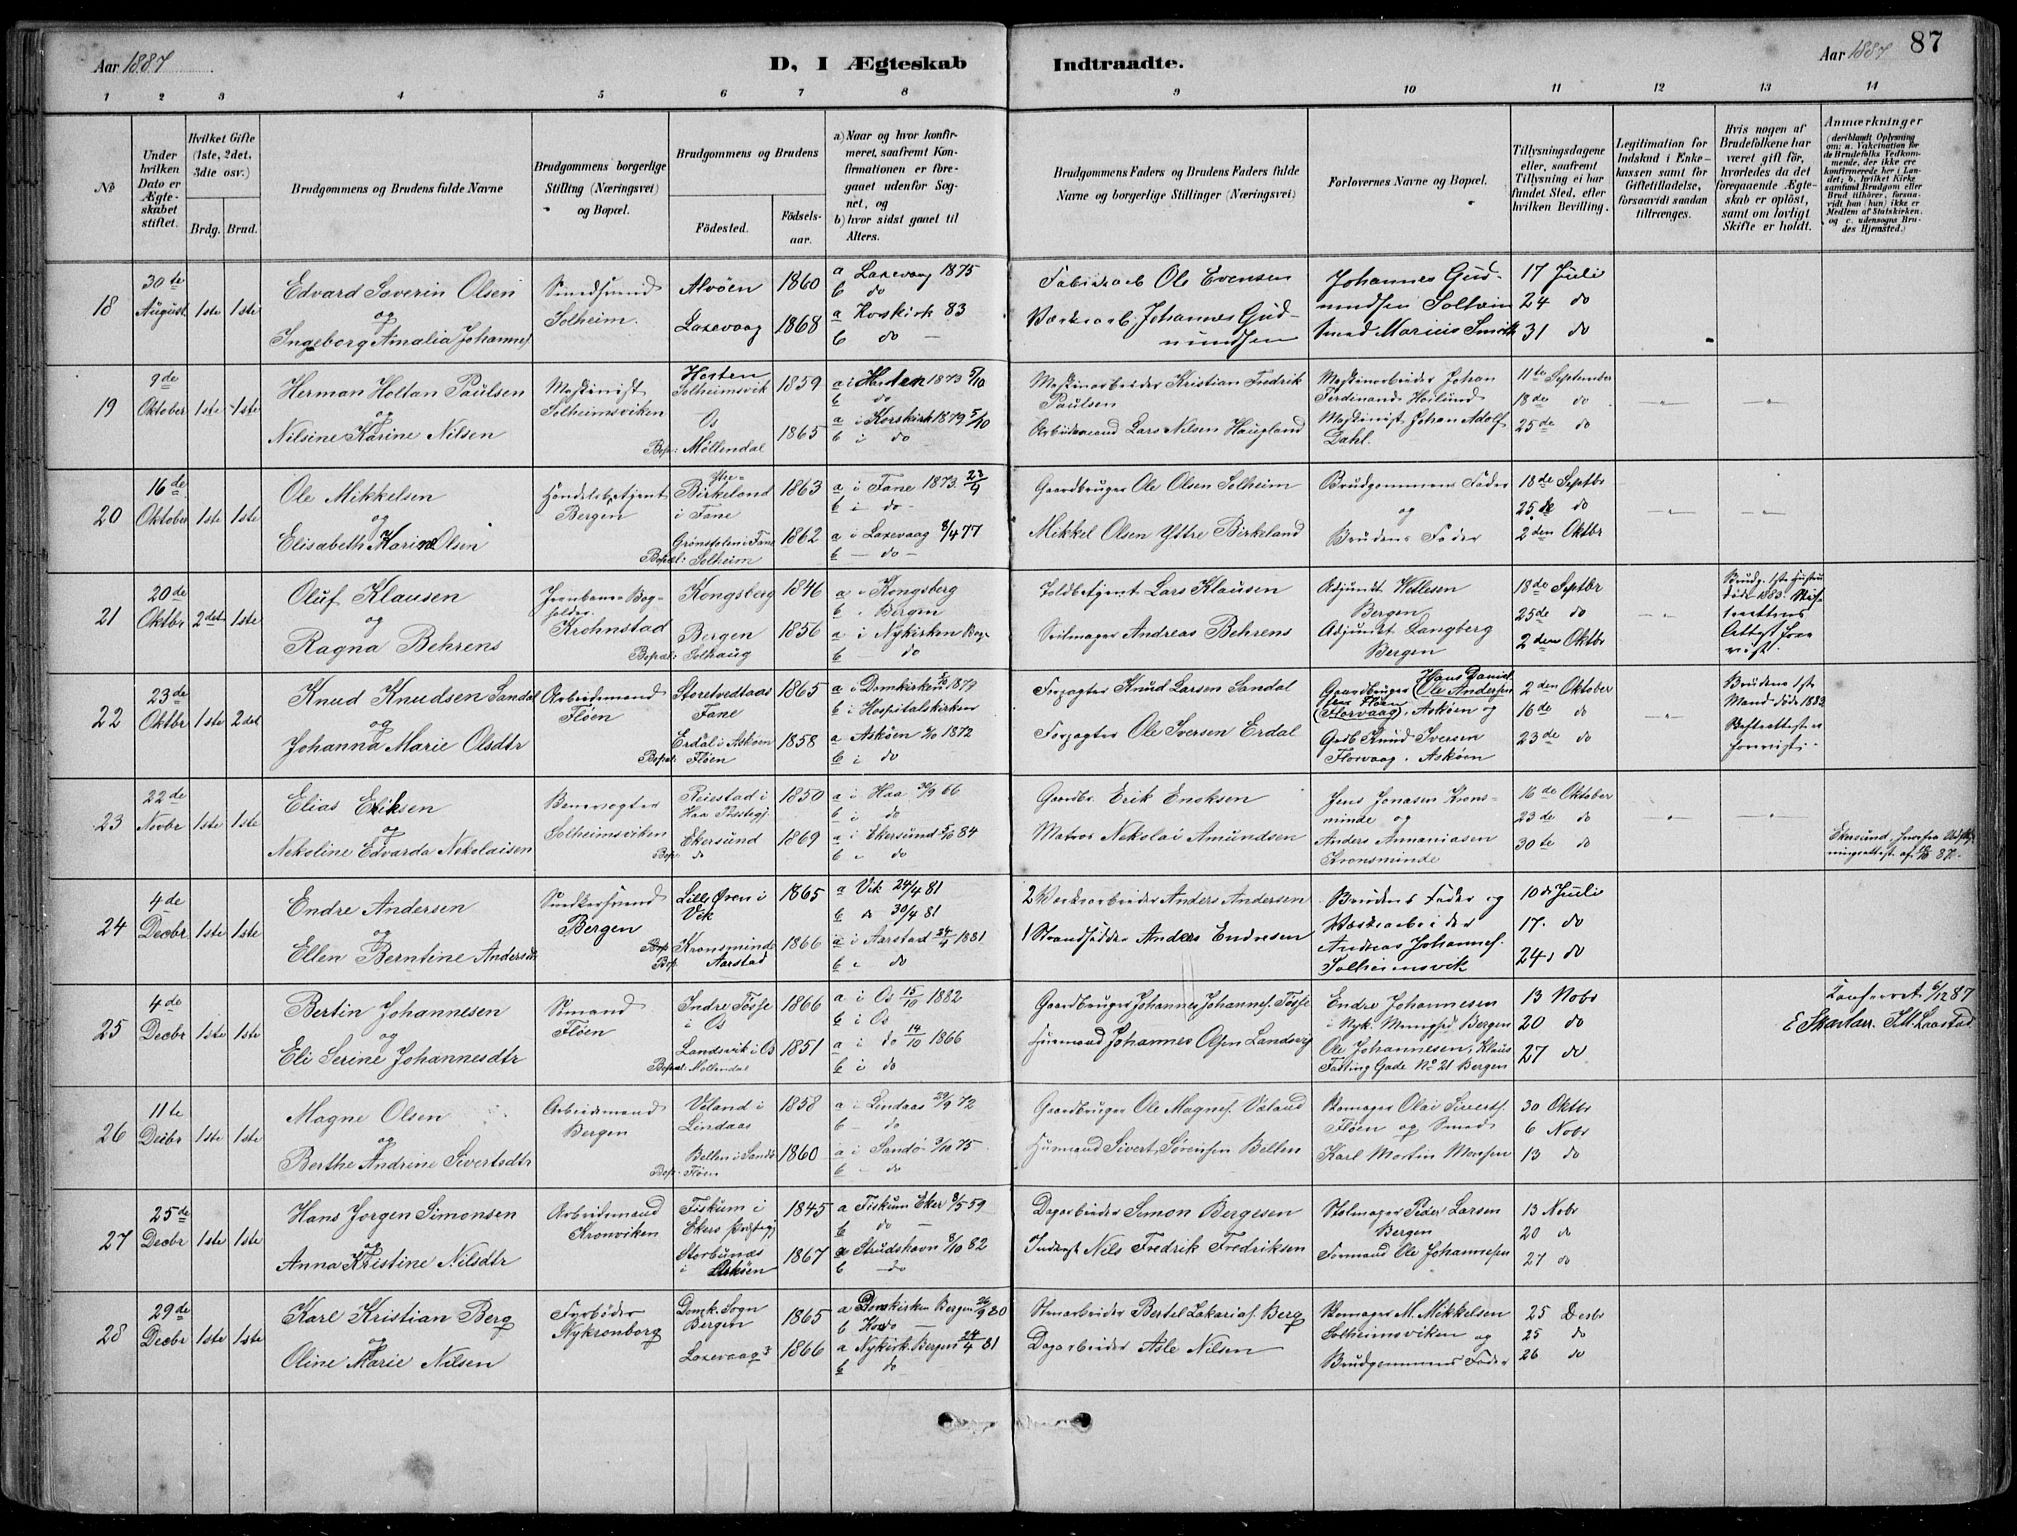 Aar 1887
D, I Ægteskab Indtraadte.
Aar 1887
87
1 2 3 4 5 6 7 8 9 10 11 12 13 14
No
Under hvilken Dato er Ægteskabet stiftet.
Hvilket Gifte (1ste, 2det, 3die osv.)
Brdg. Brud.
Brudgommens og Brudens fulde Navne
Brudgommens borgerlige Stilling (Næringsvei) og Bopæl.
Brudgommens og Brudens
Födested. Födselsaar.
a) Naar og hvor konfirmeret, saafremt Konfirmationen er foregaaet udenfor Sognet, og
b) hvor sidst gaaet til Alters.
Brudgommens Faders og Brudens Faders fulde Navne og borgerlige Stillinger (Næringsvei)
Forlovernes Navne og Bopæl.
Tillysningsdagene eller, saafremt Tillysning ei har fundet Sted, efter hvilken Bevilling.
Legitimation for Indskud i Enkekassen samt for Giftetilladelse, forsaavidt saadan tiltrænges.
Hvis nogen af Brudefolkene har været gift för, hvorledes da det foregaaende Ægteskab er oplöst, samt om lovligt Skifte er holdt.
Anmærkninger (deriblandt Oplysning om: a. Vakcination for de Brudefolks Vedkommende, der ikke ere konfirmerede her i Landet; b. hvilket Kirkesamfund Brudgom eller Brud tilhörer, forsaavidt han (hun) ikke er Medlem af Statskirken. og c. udensogns Brudes Hjemsted.)
18 30te August 1ste 1ste
Edvard Severin Olsen
og
Ingeborg Amalia Johannes
Smedsvend Solheim.
Alvöen 1860 a Laxevaag 1875 b do
Laxevaag 1868 a Korskirk 83 b do
Fabrikarb Ole Evensen
Værksarb. Johannes Gudmundsen
Johannes Gudmundsen Solheim
Smed Marius Smith
17 Juli
24 do
31 do
19 9de Oktober 1ste 1ste
Herman Holtan Paulsen
og
Nilsine Karine Nilsen
Maskinist Solheimsviken
Horten Solheimsvik 1859 a i Horten 1873 5/10 b do
Os Bopæl: Möllendal 1865 a i Korskirk 1879 5/10 b i do
Maskinarbeider Kristian Fredrik Paulsen
Arbeidsmand Lars Nilsen Haugland
Maskinarbeider Johan Ferdinand Hoilund
Maskinist Johan Adolf Dahl.
11te September
18de do
25de do
20 16de Oktober 1ste 1ste
Ole Mikkelsen
og
Elisabeth Karine Olsen
Handelsbetjent Bergen
Ytre Birkeland i Fane 1863 a i Fane 1873 b i do
Bopæl: Solheim 1862 a i Laxevaag 8/4 77 b — do —
Gaardbruger Ole Olsen Solheim
Mikkel Olsen Yttre Birkeland
Brudgommens Fader
og
Brudens Fader
18de Septbr
25de do
2den Oktbr
21 20de Oktbr 2det 1ste
Oluf Klausen
og
Ragna Behrens
Jernbane-Bogholder Krohnstad
Kongsberg 1846 a i Kongsberg b i Bergen
Bergen Bopæl: Solhaug 1856 a i Nykirken Berg b do
Toldbetjent Lars Klausen
Seilmager Andreas Behrens
Adjunct Wetlesen Bergen
Adjunct Langberg Bergen
18de Septbr
25de do
2den Oktbr
Brudg. 1ste Hustru död 1883
22 23de Oktbr 1ste 2det
Knud Knudsen Sandal
og
Johanna Marie Olsdtr
Arbeidsmand Flöen
Storetvedtaas Fane 1865 a i Domkirken 1879 b i Hospitalskirken
Erdal i Asköen Bopæl: Flöen 1858 a Asköen 1872 b i do
Forpagter Knud Larsen Sandal
Forpagter Ole Iversen Erdal
Gaardbruger Hans Daniel Ole Andersen Florvaag, Asköen og
Gdb Knud Iversen Florvaag, Asköen
2den Oktober
16de do
23de do
Brudens 1ste Mand död 1882
23 22de Novbr 1ste 1ste
Elias Eriksen
og
Nekoline Edvarda Nekolaisen
Banevogter Solheimsviken
Reiestad i Haa Præstegj. 1850 a i Haa 66 b i do
Ekersund Bop: do 1869 a i Ekersund 84 b do
Gaardbr. Erik Enoksen
Matros Nekolai Amundsen
Jens Jonasen Kronsminde og
Anders Annaniasen Kronsminde
16de Oktober
23de do
30te do
24 4de Decbr 1ste 1ste
Endre Andersen
og
Ellen Berntine Andersdtr
Snedkersvend Bergen
Lille Ören i Vik 1865 a Vik 24/4 81 b do 30/4 81
Bop. Kronsminde Aarstad 1866 a i Aarstad 24/4 1881 b do
2 Værksarbeider Anders Andersen
1 Strandsidder Anders Endresen
Brudens Fader og
Værksarbeider Andreas Johannes. Solheimsvik
10de Juli
17. do
24. do
25 4de Decbr 1ste 1ste
Bertin Johannesen
og
Eli Serine Johannesdtr
Flöen
Indre Tösse i Os 1866 a i Os 15/10 1882 b i Os
Landsvik i Os Bopæl: Möllendal 1851 a i do 14/10 1866 b i do
Gaardbruger Johannes Johannes. Tösse
Husmand Johannes Olsen Landsvig
Endre Johannesen i Nyk. Menighed Bergen
Ole Johannesen, Klaus Fasting Gade No 21 Bergen
13 Nobr
20 do
27 do
26 11te Decbr 1ste 1ste
Magne Olsen
og
Berthe Andrine Sivertsdtr
Arbeidsmand Bergen
Veland i Lindaas 1858 a i Lindaas 72 b — do
Bop: Flöen 1860 a i Sandö 75 b — do
Gaardbruger Ole Magnes. Væland
Husmand Sivert Sörensen Bellen
Olai Siverts. Flöen og Smed
Karl Martin Monsen
30 Oktbr
6 Nobr
13 do
27 25de Decbr 1ste 1ste
Hans Jörgen Simonsen
og
Anna Kristine Nilsdtr
Arbeidsmand Kronviken
Fiskum i Ekers Præstegj 1845 a Fiskum Eker 8/5 59 b do
i Asköen 1867 a Strudshavn 8/10 82 b do
Dagarbeider Simon Bergesen
Inderst Nils Fredrik Fredriksen
Stolmager Peder Larsen Bergen
Formand Ole Johannesen
13 Nobr
20 do
27 do
28 29de Decbr 1ste 1ste
Karl Kristian Berg
og
Oline Marie Nilsen
Fyrböder Nykronborg
Domk. Sogn Bergen 1865 a Domkirken Bergen 80 b do
Laxevaag 1866 a Nykirk. Bergen 24/4 81 b do
Stenarbeider Bertel Zakarias. Berg
Dagarbeider Asle Nilsen
M. Mikkelsen Solheimsviken og
Brudgommens Fader
25 Decbr
25 do
26 do